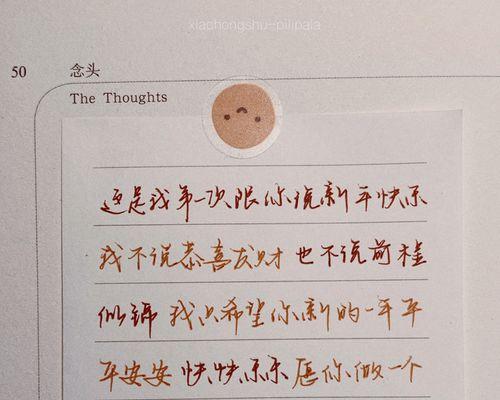 xiaohongshu-pilipala
50 念头
The Thoughts
这是我第一次跟你说新年快乐
我不说恭喜发财 也不说前程
似锦 我只希望你新的一年平
平安安 快快乐乐 愿你做一个